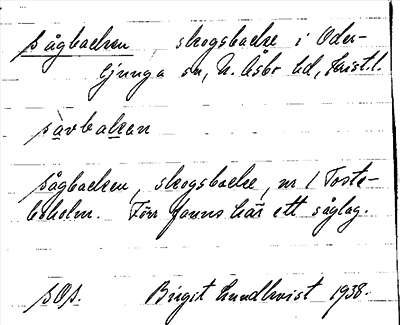 Sågbacken, skogsbacke i Oder-
ljunga sn, N. Åsbo hd, Krist. l.
såvbakan
Sågbacken, skogsbacke, nr 1 Toste-
boholm. Förr fanns här ett såglag.
SOA. Birgit Lundkvist 1938.